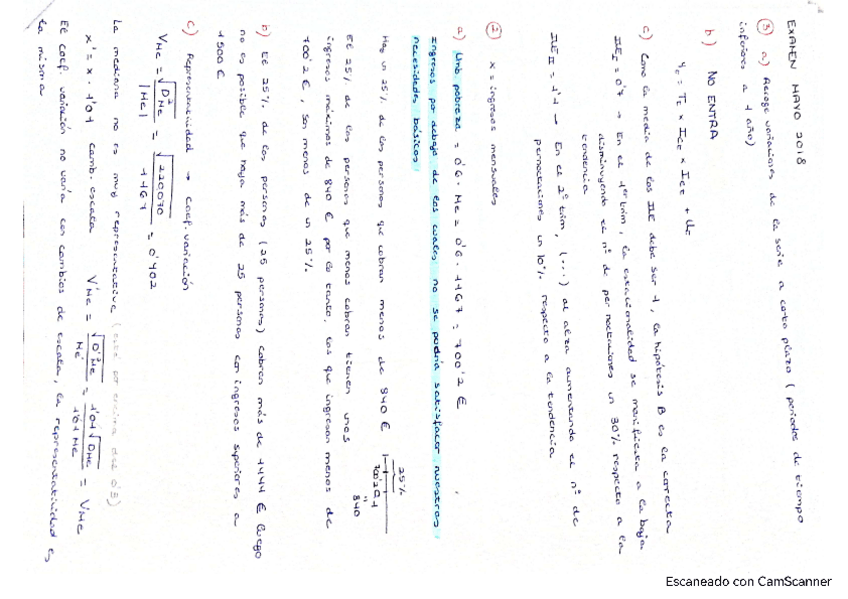 EXAMEN MAYO 2018
③ a) Recoge variaciones de la serie a corto plazo (periodos de tiempo
inferiores a 1 año)
b) NO ENTRA
c) Como la media de los IE debe ser 1, la hipótesis B es la correcta
IE I = 0'7 → En el 1er trim, la estacionalidad se manifiesta a la baja
disminuyendo el nº de pernoctaciones un 30% respecto a la
tendencia
IE II = 1'1 → En el 2º trim, (...) al alza aumentando el nº de
pernoctaciones un 10% respecto a la tendencia
② x = ingresos mensuales
a) Umb. pobreza = 0'6 · Me = 0'6 · 1167 = 700'2 €
ingresos por debajo de los cuales no se podría satisfacer nuestras
necesidades básicas.
Hay un 25% de las personas que cobran menos de 840 €
25%
700'2 Q1
"
840
El 25% de las personas que menos cobran tienen unos
ingresos máximos de 840 € por lo tanto, las que ingresan menos de
700'2 €, son menos de un 25%.
b) El 25% de las personas (25 personas) cobran más de 1444 € luego
no es posible que haya más de 25 personas con ingresos superiores a
1500 €
c) Representatividad → Coef. variación
VMe = √D²Me / |Me| = √220070 / 1167 = 0'402
La mediana no es muy representativa (está por encima del 0'3)
x' = x · 1'01 camb. escala V'Me = √D'²Me / Me' = 1'01 √DMe / 1'01 Me = VMe
El coef. variación no varía con cambios de escala, la representatividad es
la misma
Escaneado con CamScanner